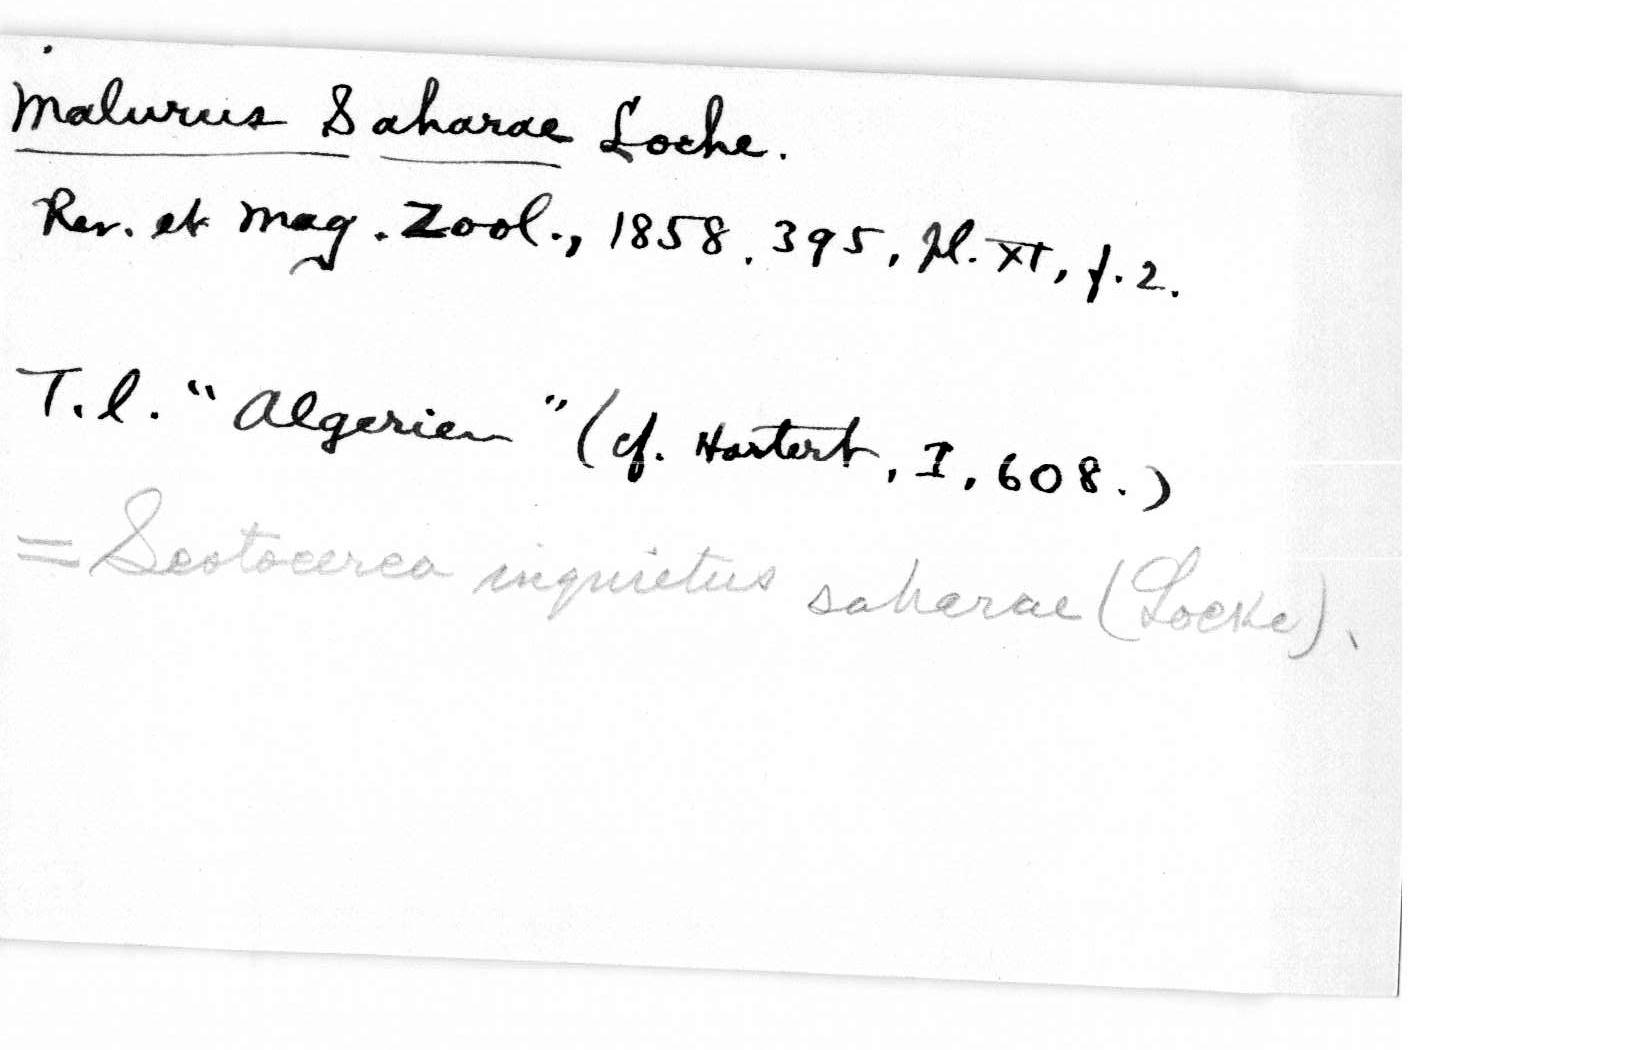 Malurus Saharae Loche.
Rev. et Mag. Zool., 1858, 395, pl. XI, f. 2.
T. l. "Algerien" (cf. Hartert, I, 608.)
= Scotocerca inquietus saharae (Loche).